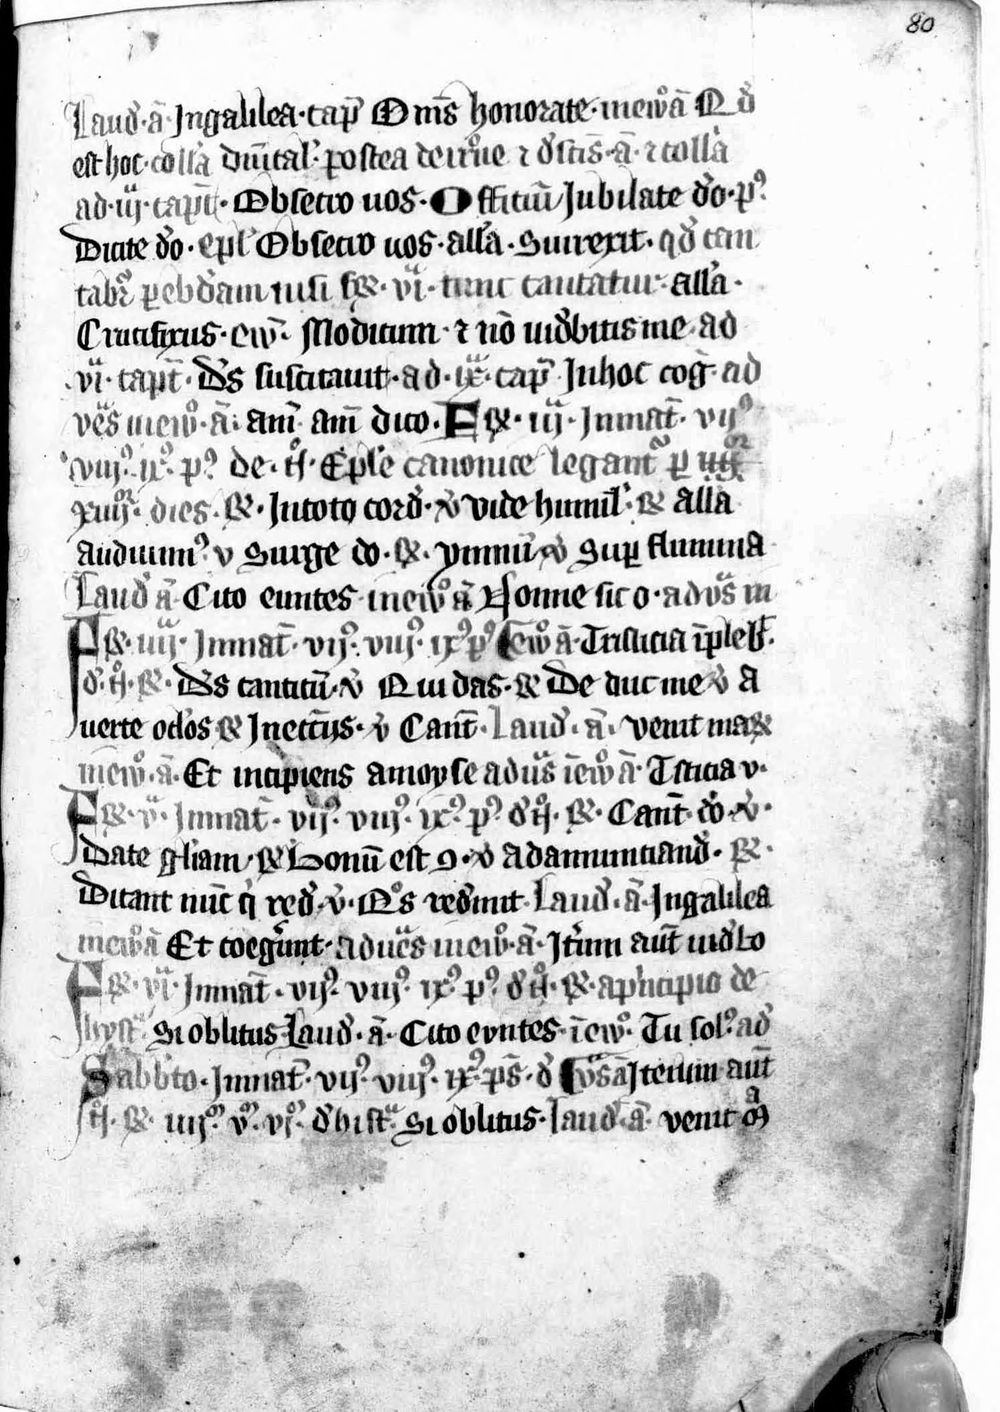 80
Laud̄. ā. In galilea. cap̄ Om̄s honorate. in ew̄ ā Qd̄
est hoc. coll̄a dn̄ical̄. postea de cruce ⁊ d̄ sc̄is. ā. ⁊ coll̄a
ad. iij. capit̄. Obsecro uos. Officiū Jubilate dō. pˢ
Dicite dō. epl̄ Obsecro uos. all̄a. Surrexit. qd̄ can
tabr̄ p ebd̄am nisi fer̄. vi. tunc cantatur. all̄a.
Crucifixus. ew̄. Modicum. ⁊ nō uid̄bitis me. ad
vi. capt̄. D̄s suscitauit. ad. ix. cap̄ In hoc coḡ. ad
ves̄ in ew̄. ā. am̄ am̄ dico. Fer̄. iij. In mat̄. vij
viij. ix. pˢ de. Epl̄e canonice legant̄ p
xiiij. dies. R̄. In toto cord̄. v̄ vide humil̄. R̄ all̄a
audiuimˢ v Surge do. R̄. ymnū v̄ Sup flumina
Laud̄ ā. Cito euntes. in ew̄ ā Nonne sic o. ad vs̄ in
Fer̄. iiij. In mat̄. vij. viij. ix. pˢ ew̄ ā. Tristicia īpleb̄.
R̄. D̄s canticū. v̄ Qui das. R̄ De duc me v̄ A
uerte oc̄los R̄ In ecc̄ijs. v̄ Cant̄. Laud̄. ā. venit mar̄
in ew̄. ā. Et incipiens a moyse ad us̄ ī ew̄ ā. Tsticia v.
Fer̄. v. In mat̄. vij. viij. ix. pˢ R̄. Cant̄. dō. v̄.
Date gl̄iam. R̄ Bonū est 9. v̄ ad annunciand̄. R̄.
Dicant nūc q̄ red̄. v̄. Q̄s redimit. Laud̄. ā. In galilea
in ew̄ ā Et coeḡunt. ad ves̄ in ew̄. ā. Itm̄ aūt uid̄bo
Fer̄. vi. In mat̄. vij. viij. ix. pˢ R̄. a p̄ncipio de
hyst̄. Si oblitus Laud̄. ā. Cito euntes. ī ew̄. Tu sol̄. ad
Sabb̄to. In mat̄. vij. viij. ix. ps̄. d̄ vs̄ ā Iterum aūt
R̄. iiij. v. vi. d̄ hist̄. Si oblitus. laud̄. ā. venit m̄